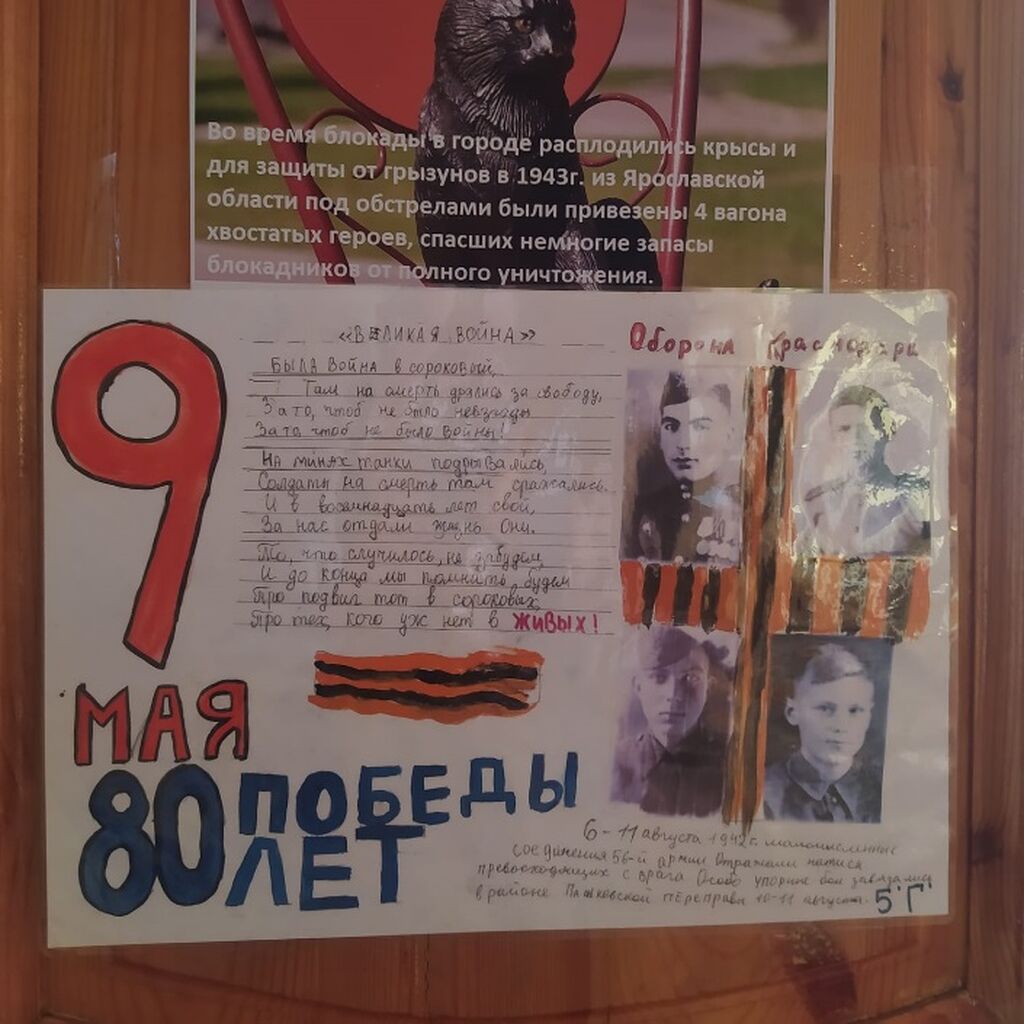 Во время блокады в городе расплодились крысы и
для защиты от грызунов в 1943г. из Ярославской
области под обстрелами были привезены 4 вагона
хвостатых героев, спасших немногие запасы
блокадников от полного уничтожения.
9
МАЯ
80 ПОБЕДЫ
ЛЕТ
«ВЕЛИКАЯ ВОЙНА»
БЫЛА ВОЙНА в сороковый,
Там на смерть дрались за свободу,
За то, чтоб не было невзгоды
За то, чтоб не было войны!
На минах танки подрывались,
Солдаты на смерть там сражались.
И в восемнадцать лет свои,
За нас отдали жизнь они.
То, что случилось, не забудем,
И до конца мы помнить будем
Про подвиг тот в сороковых,
Про тех, кого уж нет в живых!
Оборона Краснодара
6-11 августа 1942г. малочисленные
соединения 56-й армии отражали натиск
превосходящих с врага Особо упорные бои завязались
в районе Пашковской переправы 10-11 августа.
5"Г"